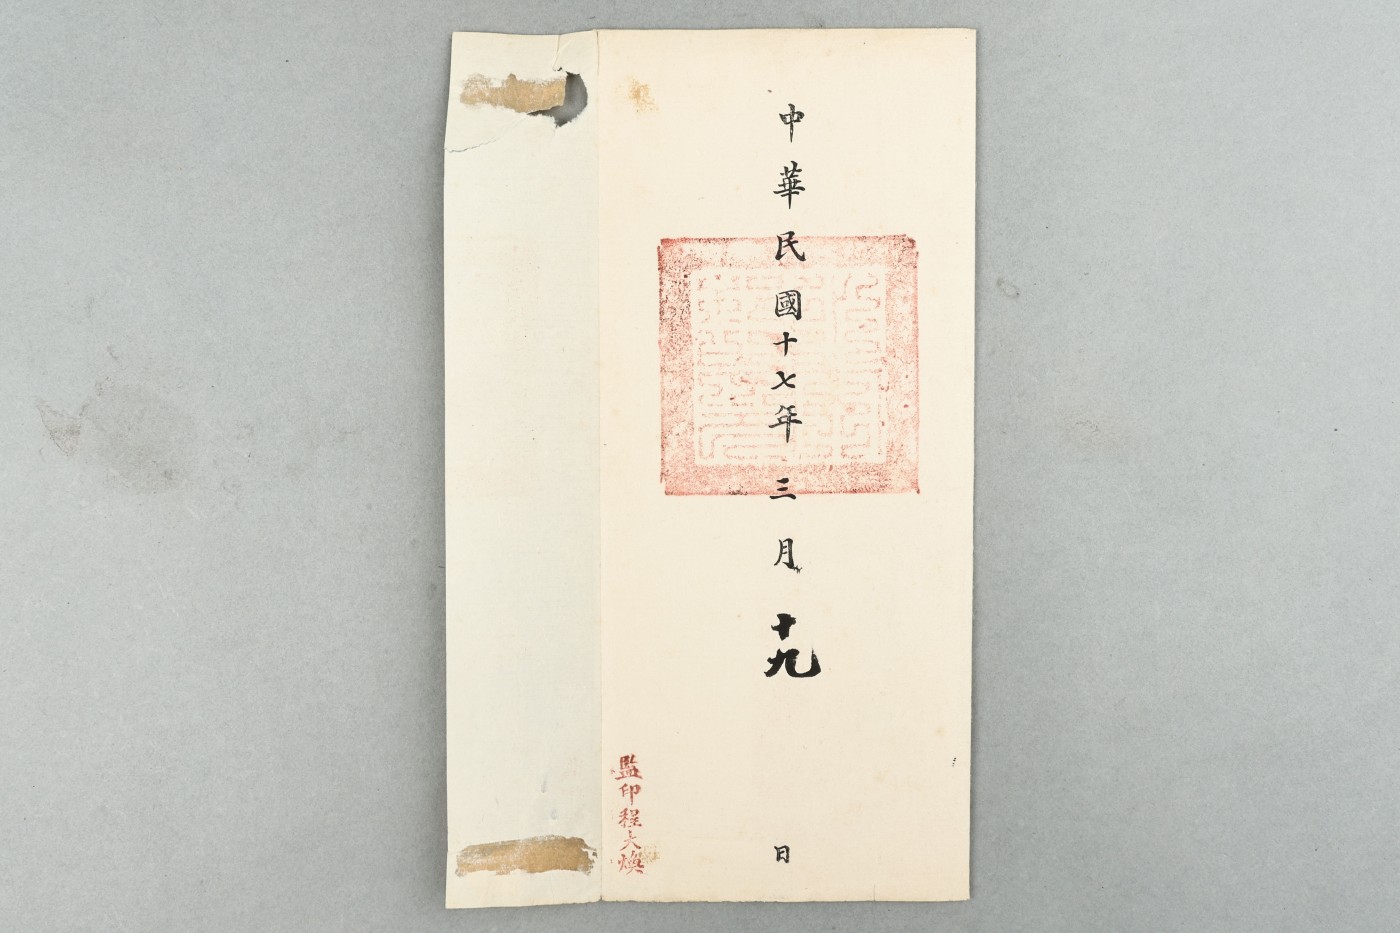 中華民國十七年三月十九日
監印程大煥